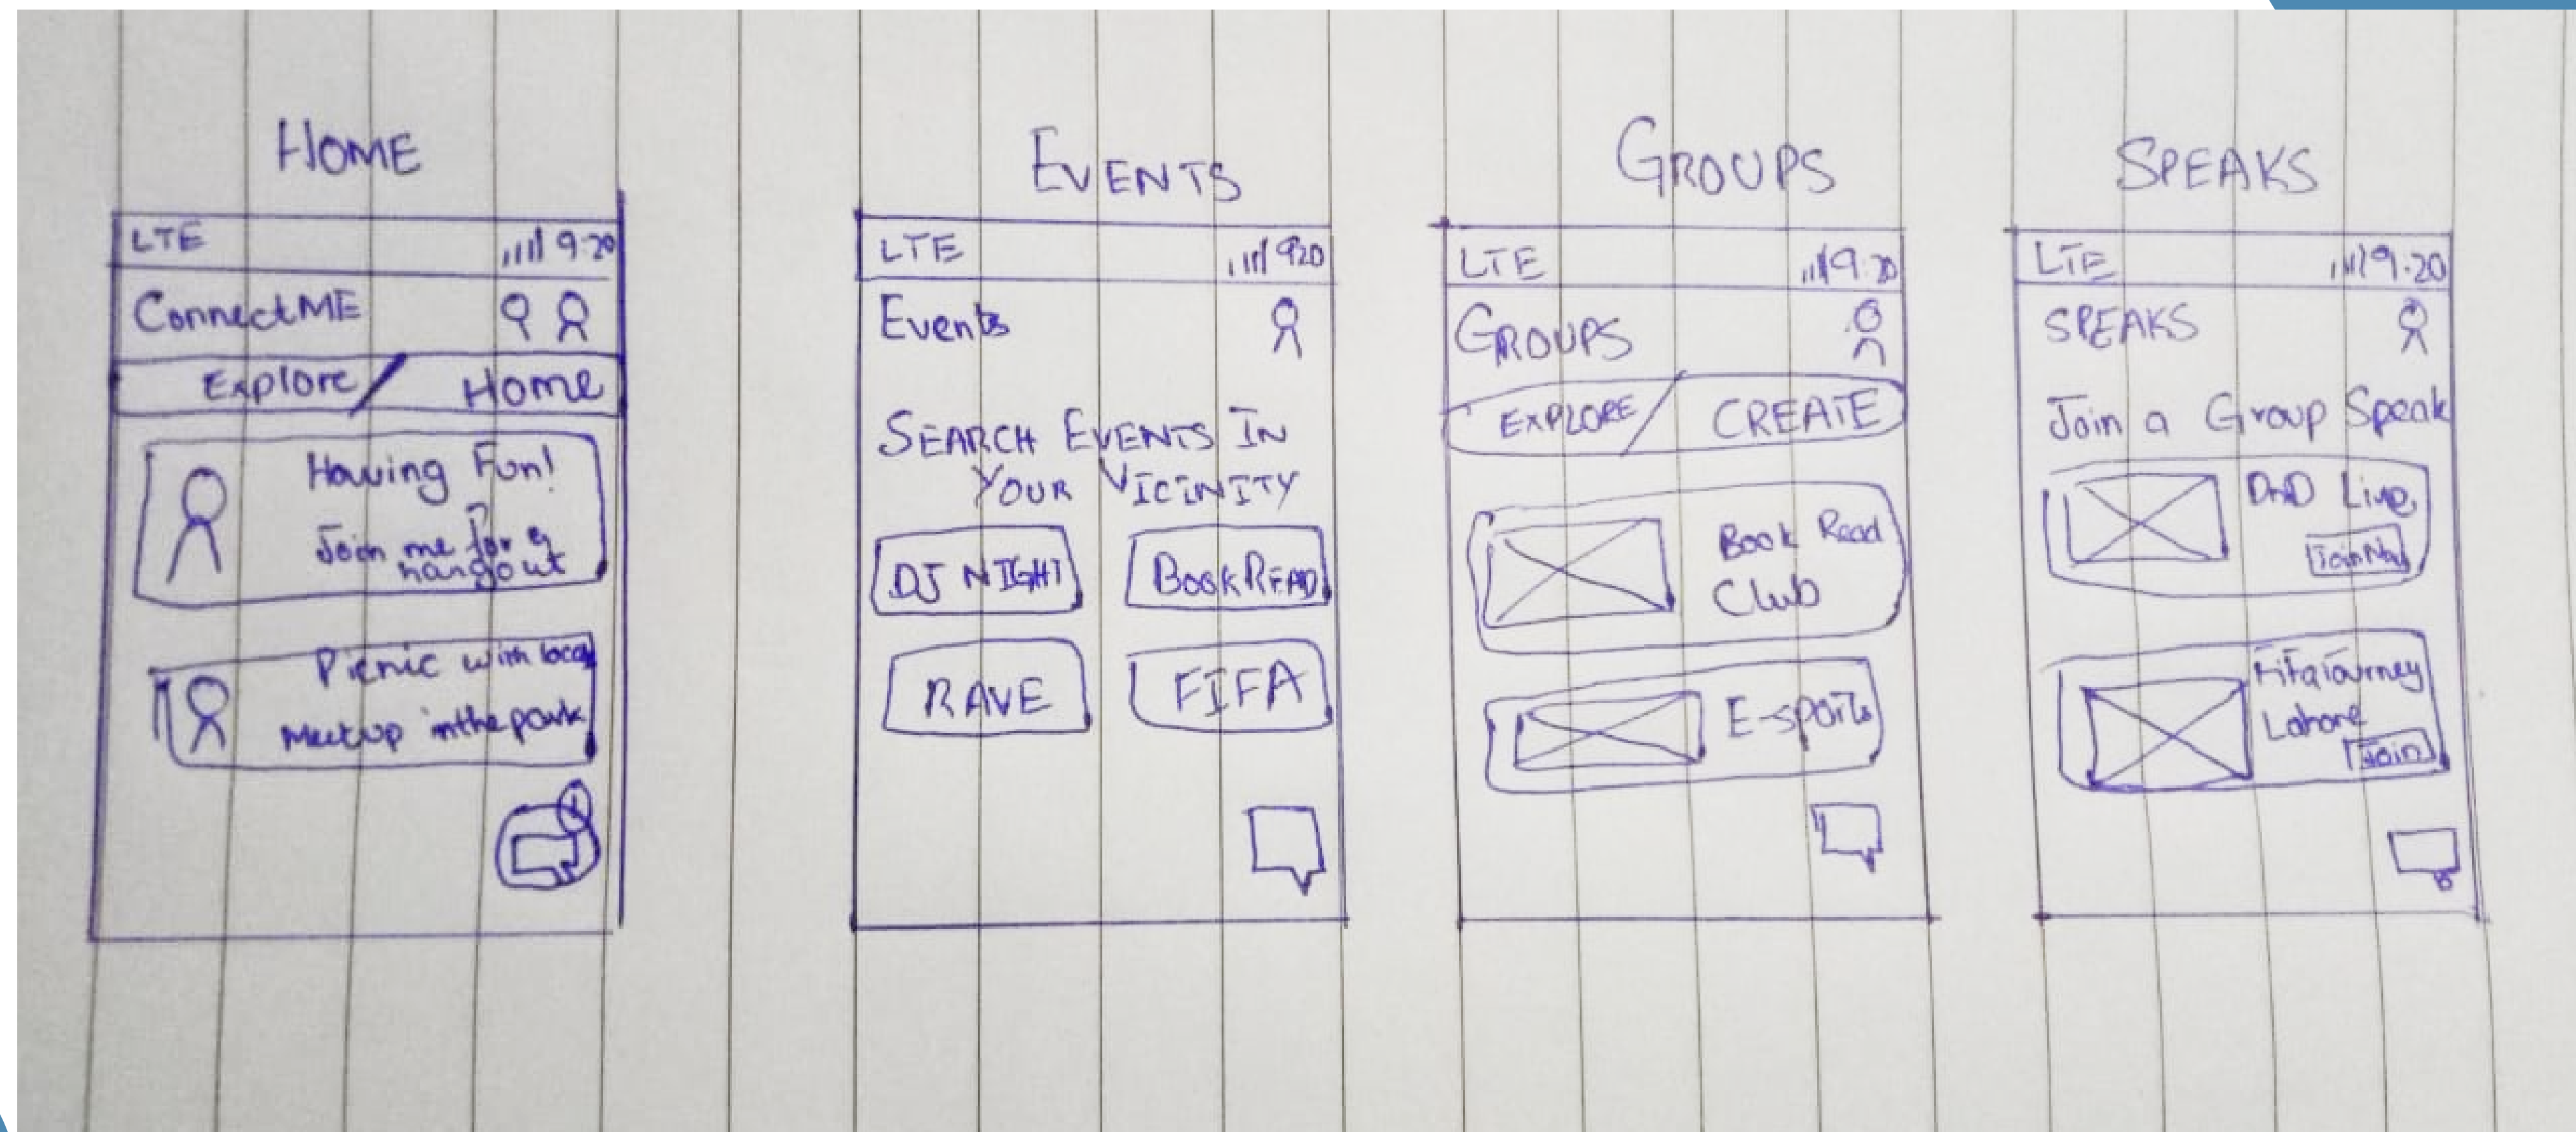 HOME
LTE 9:20
ConnectME
Explore / Home
Having Fun!
Join me for a
hangout
Picnic with local
Meetup in the park
EVENTS
LTE 920
Events
SEARCH EVENTS IN
YOUR VICINITY
DJ NIGHT BOOKREAD
RAVE FIFA
GROUPS
LTE 9:20
GROUPS
EXPLORE / CREATE
Book Read
Club
E-sports
SPEAKS
LTE 9.20
SPEAKS
Join a Group Speak
DnD Live
Join Now
Fifa Tourney
Lahore
Join